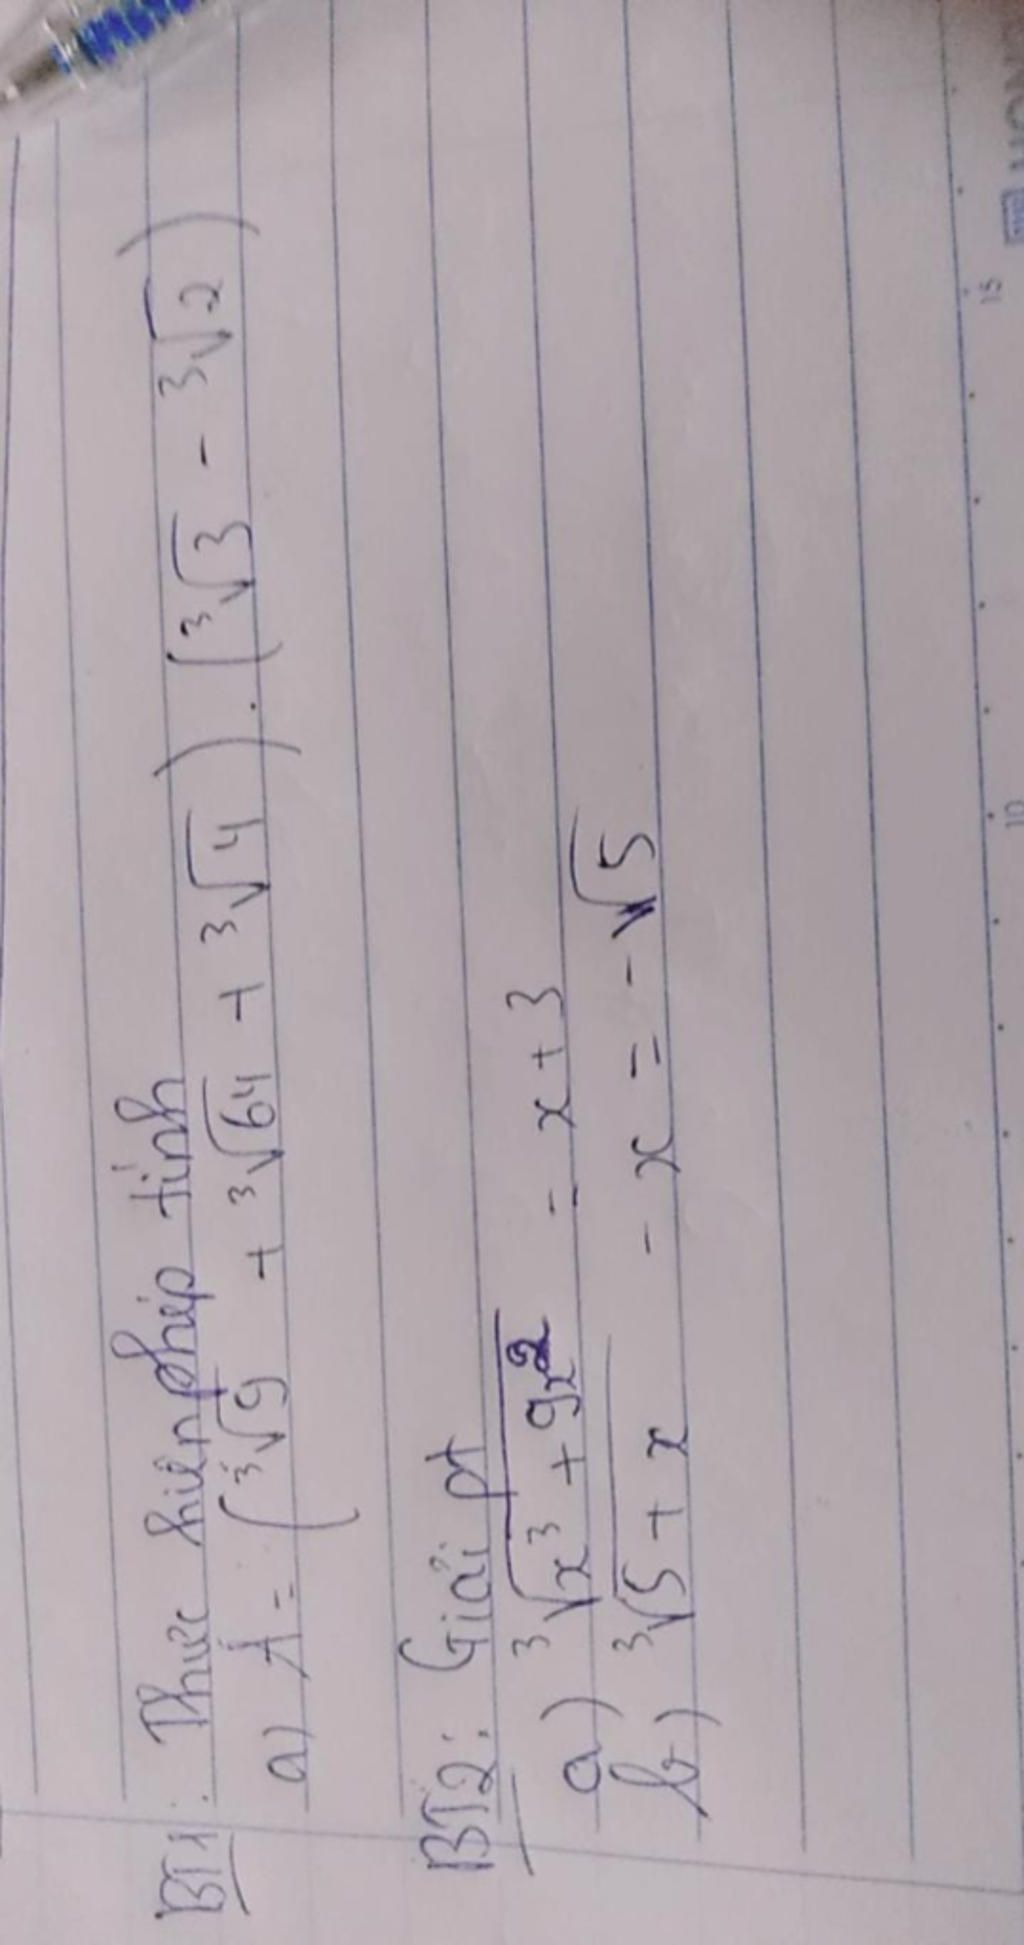 BT1: Thực hiện phép tính
a) A = (³√9 + ³√64 + ³√4) . (³√3 - ³√2)
BT2: Giải pt
a) ³√(x³ + 9x²) = x + 3
b) ³√(5 + x) - x = -√5
10 15